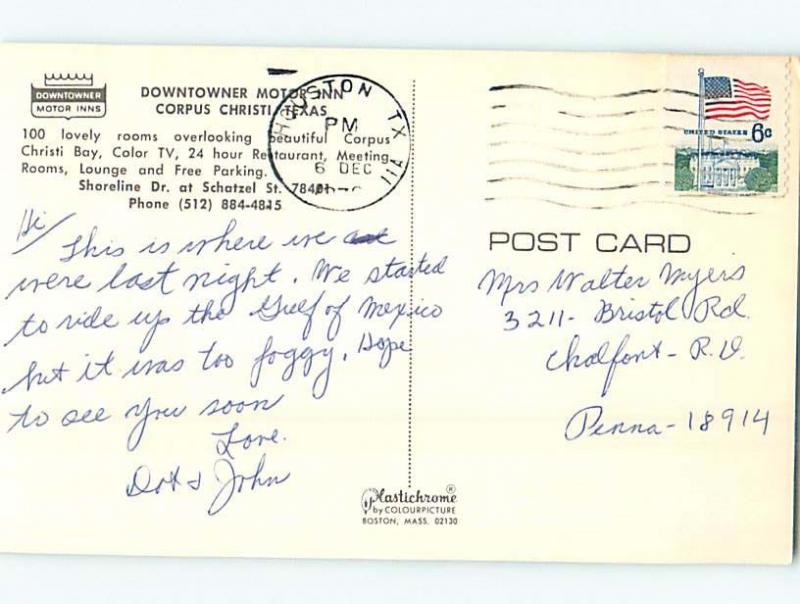 DOWNTOWNER
MOTOR INNS
DOWNTOWNER MOTOR INN
CORPUS CHRISTI, TEXAS
100 lovely rooms overlooking beautiful Corpus
Christi Bay, Color TV, 24 hour Restaurant, Meeting
Rooms, Lounge and Free Parking.
Shoreline Dr. at Schatzel St. 78401
Phone (512) 884-4815
HOUSTON TX
PM
6 DEC
UNITED STATES 6c
Hi/
This is where we
were last night. We started
to ride up the Gulf of Mexico
but it was too foggy. Hope
to see you soon
Love.
Dot & John
POST CARD
Mrs Walter Myers
3211- Bristol Rd.
Chalfont - R.D.
Penna - 18914
Plastichrome ®
by COLOURPICTURE
BOSTON, MASS. 02130